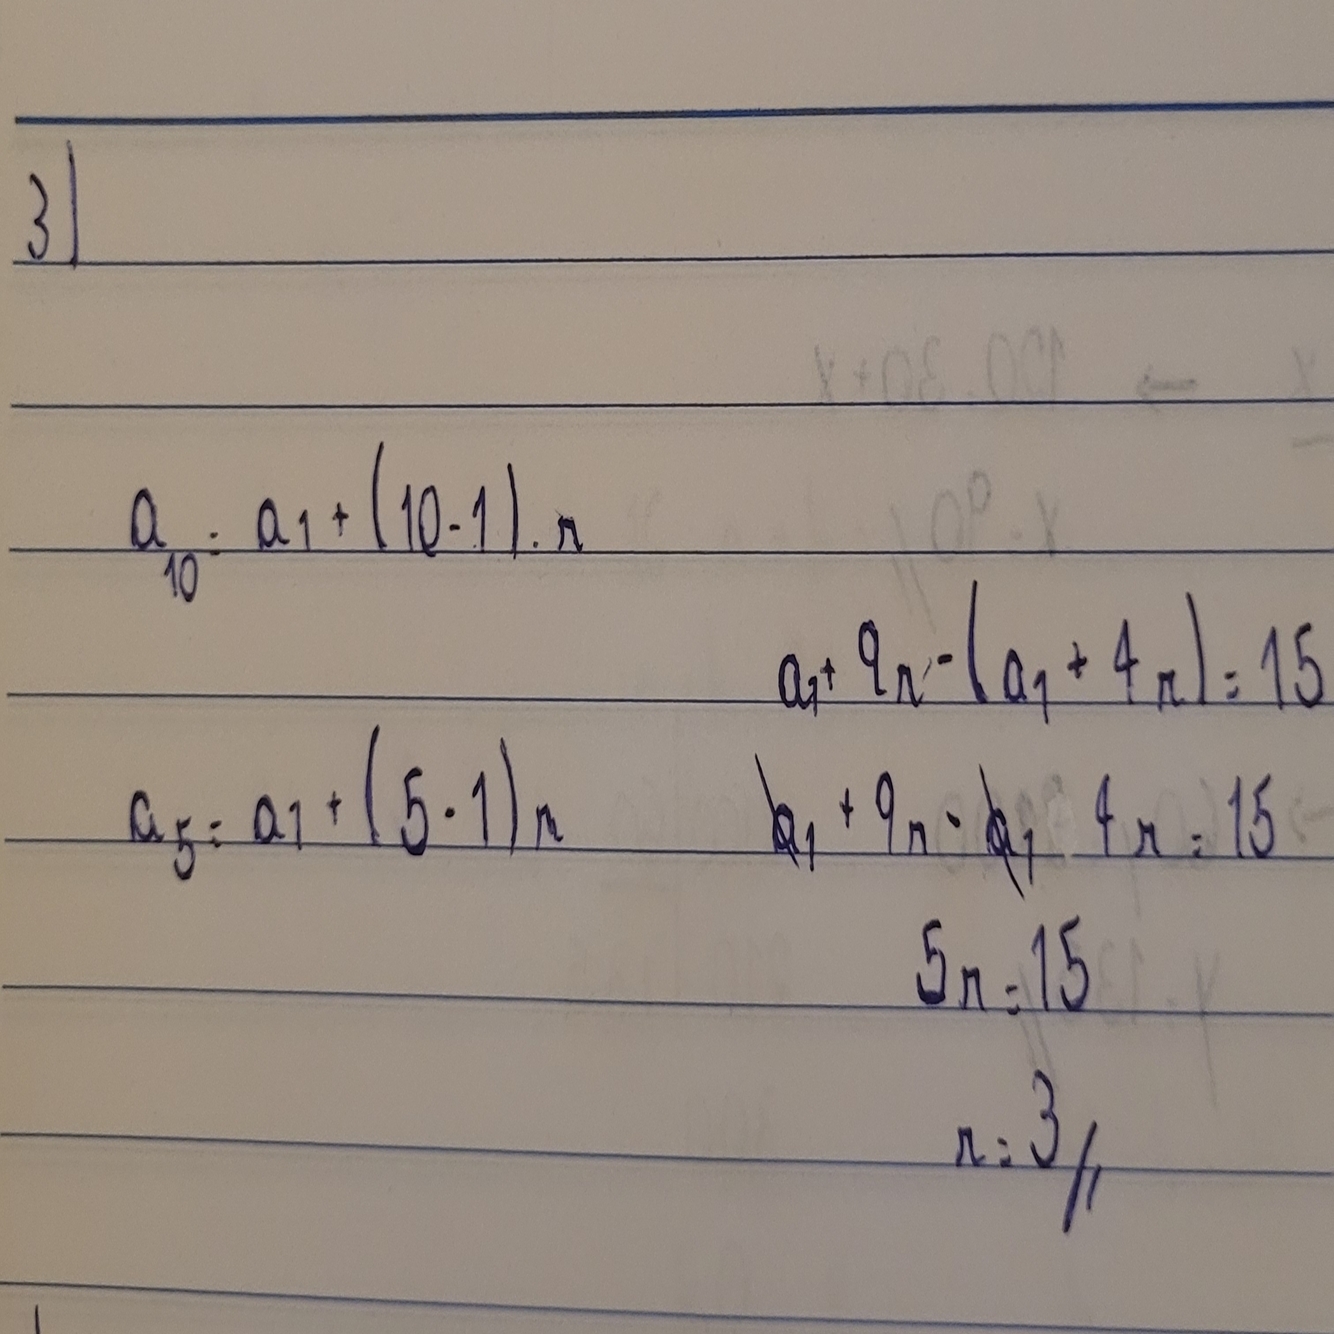 3)
a₁₀ = a₁ + (10 - 1) . r
a₁ + 9r - (a₁ + 4r) = 15
a₅ = a₁ + (5 - 1) r
a₁ + 9r - a₁ 4r = 15
5r = 15
r = 3 //